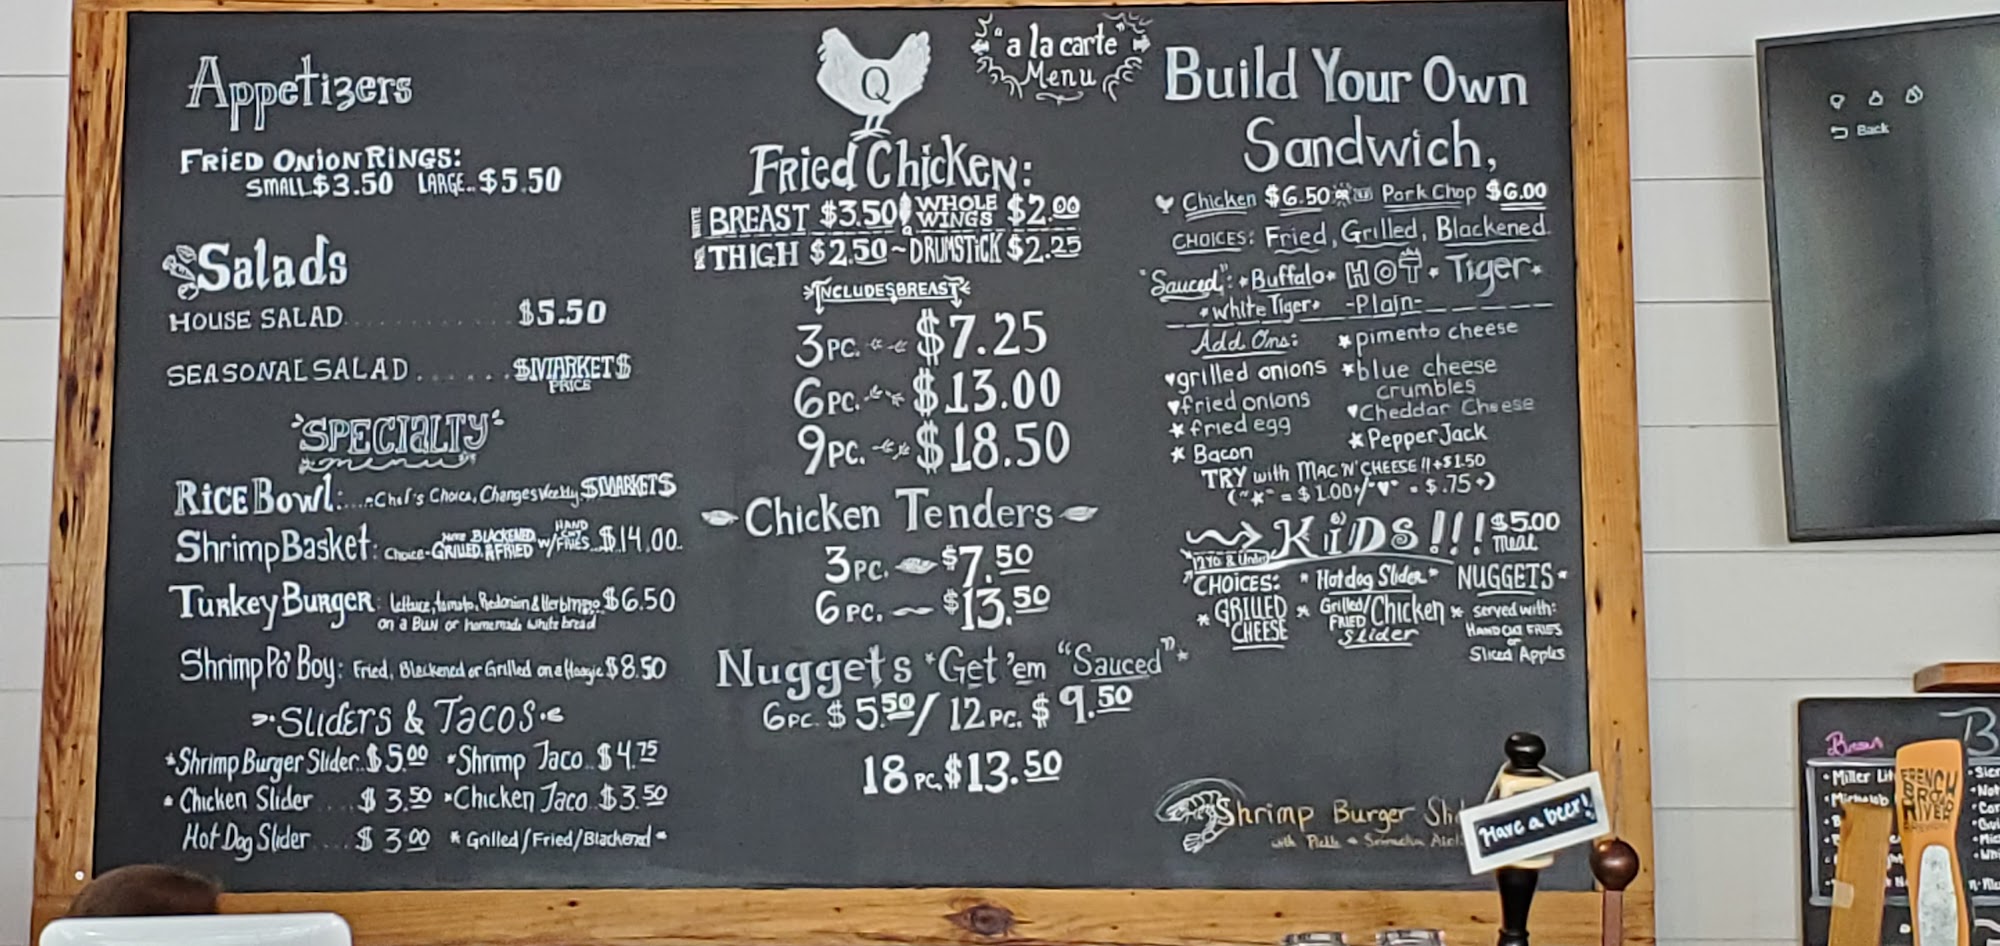 Appetizers
FRIED ONION RINGS:
SMALL.$3.50 LARGE..$5.50
Salads
HOUSE SALAD.............$5.50
SEASONAL SALAD.......$MARKET$
PRICE
"SPECIALTY"
menu
RICE Bowl:....Chef's Choice, Changes Weekly $MARKET$
Shrimp Basket: Choice-GRILLED, BLACKENED, FRIED w/ HAND CUT FRIES..$14.00
Turkey Burger: lettuce, tomato, Red onion & Herb mayo $6.50
on a BUN or homemade white bread
Shrimp Po' Boy: Fried, Blackened or Grilled on a Hoagie $8.50
Sliders & Tacos
*Shrimp Burger Slider..$5.00 *Shrimp Taco..$4.75
*Chicken Slider....$3.50 *Chicken Taco..$3.50
Hot Dog Slider....$3.00 *Grilled/Fried/Blackend*
Q
"a la carte"
Menu
Fried Chicken:
WHITE BREAST $3.50 WHOLE WINGS $2.00
THIGH $2.50~DRUMSTICK $2.25
INCLUDES BREAST
3 PC. $7.25
6 PC. $13.00
9 PC. $18.50
Chicken Tenders
3 PC. $7.50
6 PC. $13.50
Nuggets *Get 'em "Sauced"*
6 PC. $5.50/ 12 PC. $9.50
18 PC. $13.50
Build Your Own
Sandwich,
Chicken $6.50 Pork Chop $6.00
CHOICES: Fried, Grilled, Blackened
"Sauced": *Buffalo* HOT * Tiger*
*White Tiger* -Plain-
Add Ons:
♥grilled onions
♥fried onions
*fried egg
*Bacon
*pimento cheese
*blue cheese
crumbles
♥Cheddar Cheese
*Pepper Jack
TRY with MAC 'N' CHEESE!! +$1.50
("*" = $1.00+/"♥" = $.75+)
KiDS!!! $5.00
Meal
12 Yo. & Under
CHOICES: *Hotdog Slider* NUGGETS*
*GRILLED CHEESE * Grilled/FRIED Chicken Slider * served with:
HAND CUT FRIES
or
Sliced Apples
Shrimp Burger
with Pickle
Have a beer!
Back
FRENCH
BROAD
RIVER
Miller